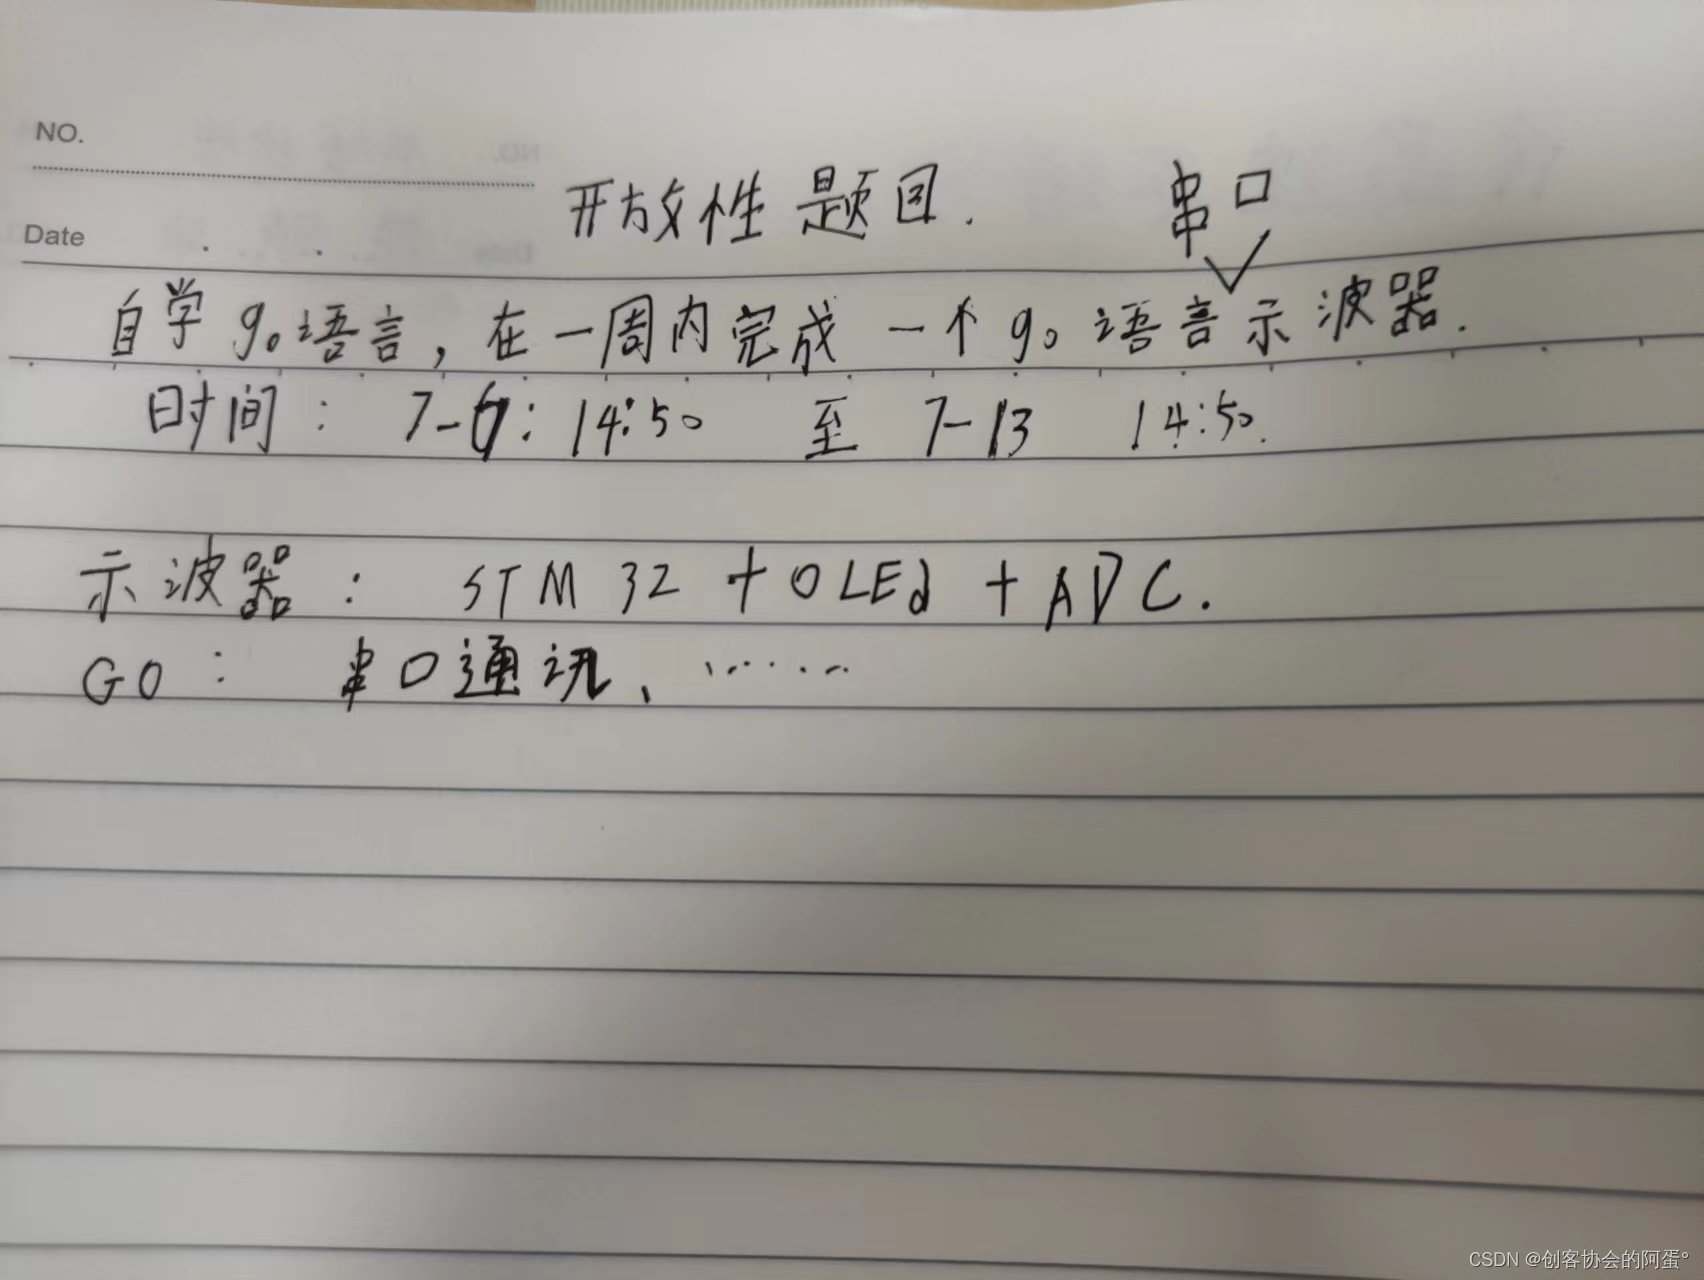 NO.
开放性题目.
串口
Date
自学go语言，在一周内完成一个go语言示波器.
时间： 7-6: 14:50 至 7-13 14:50.
示波器： STM32+OLEd+ADC.
GO： 串口通讯、……
CSDN @创客协会的阿蛋°